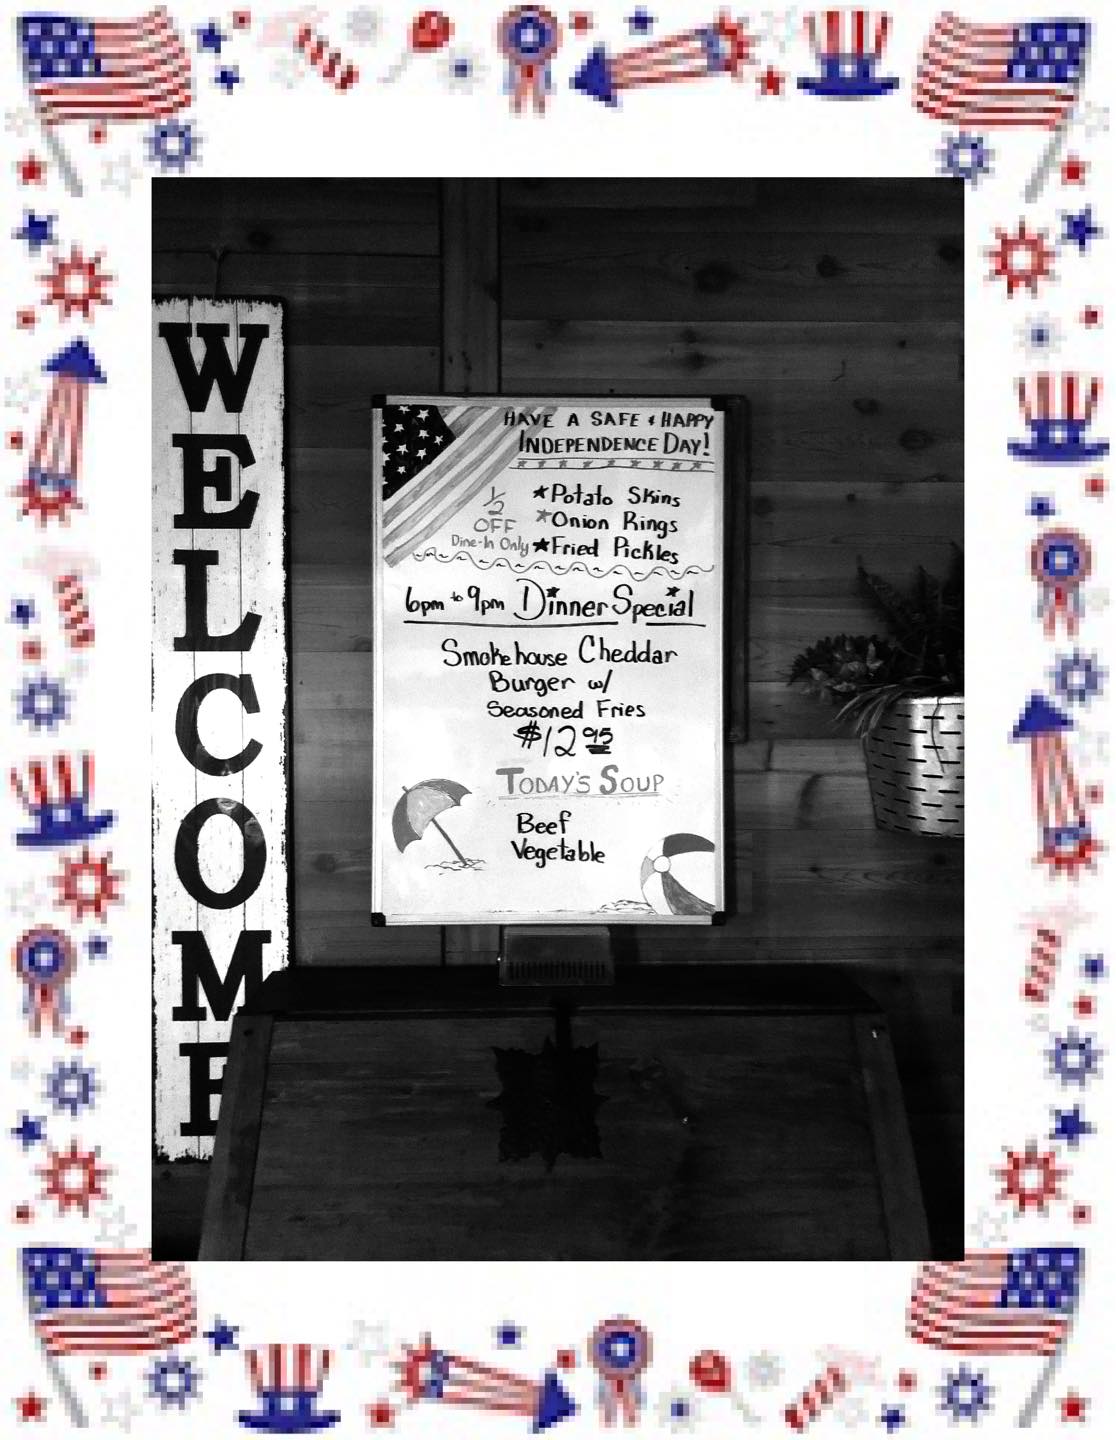 WELCOME
HAVE A SAFE & HAPPY
INDEPENDENCE DAY!
1/2
OFF
Dine-In Only
★Potato Skins
★Onion Rings
★Fried Pickles
6pm to 9pm Dinner Special
Smokehouse Cheddar
Burger w/
Seasoned Fries
$12.95
TODAY'S SOUP
Beef
Vegetable